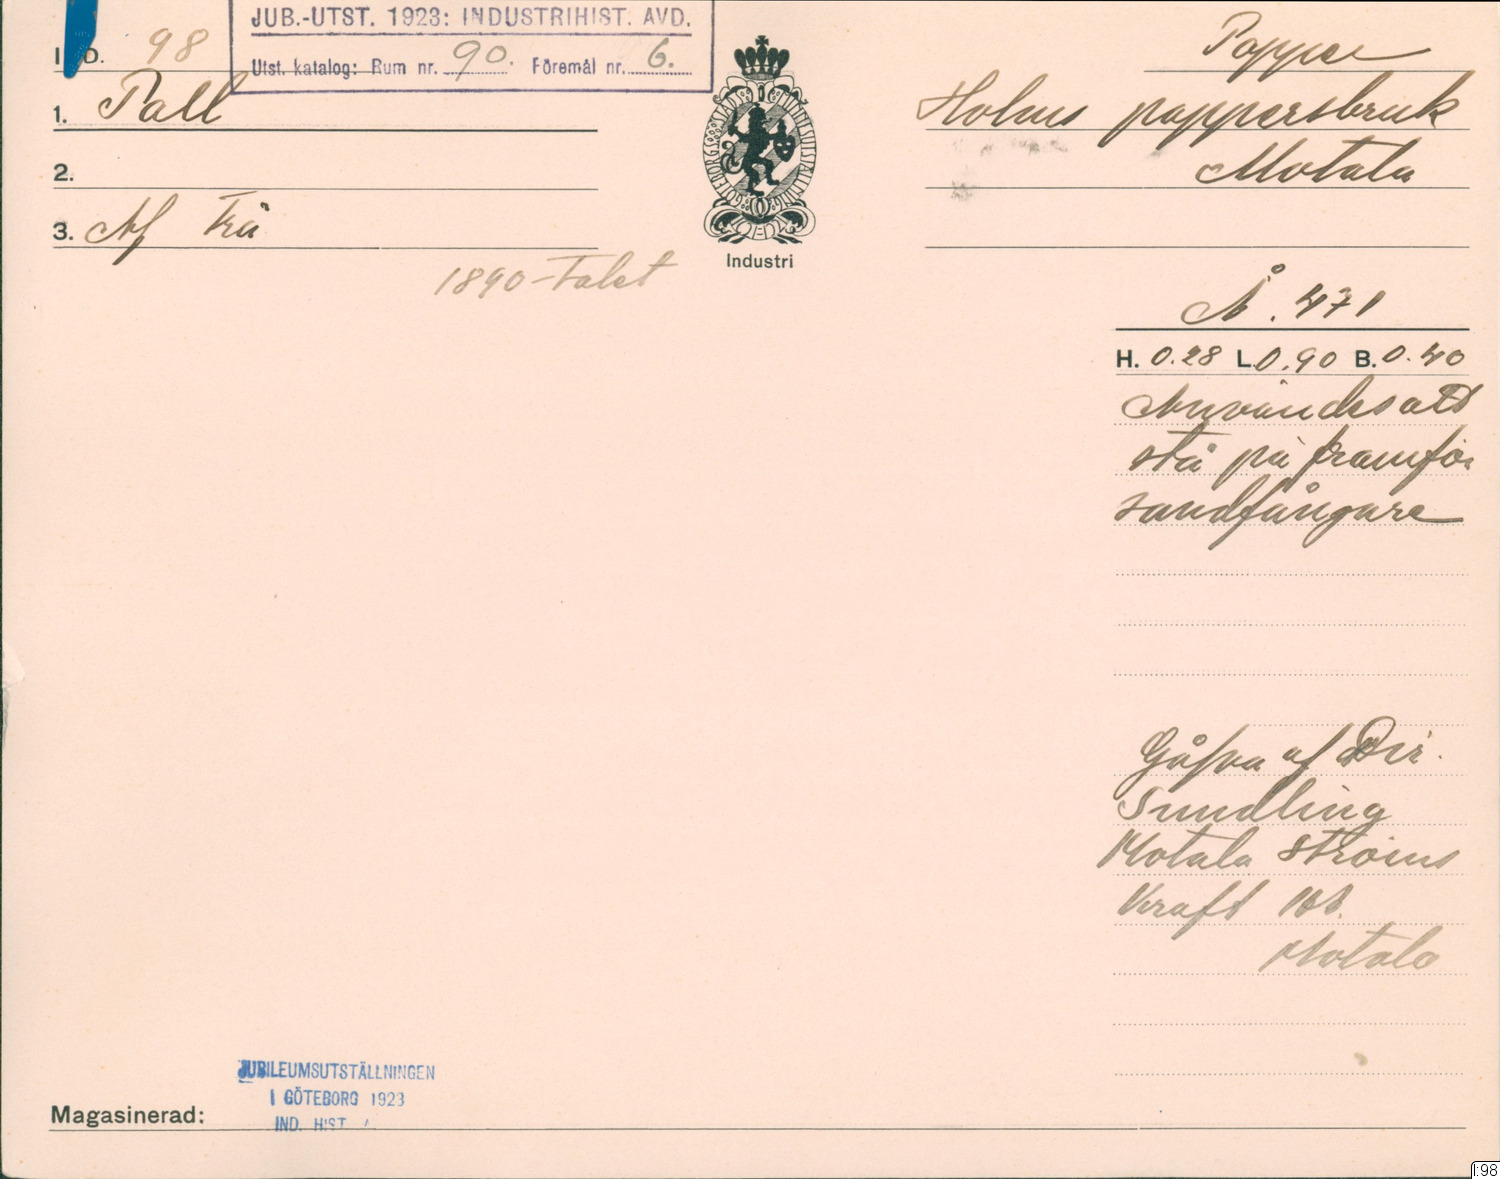 JUB.-UTST. 1923: INDUSTRIHIST. AVD.
Utst. katalog: Rum nr. 90. Föremål nr. 6.
I D. 98
1. Pall
2.
3. Af Trä
1890-Talet
GÖTEBORGS STADS
Industri
Papper
Holms pappersbruk
Motala
Å. 471
H. 0.28 L. 0.90 B. 0.40
Användes att
stå på framför
sandfångare
Gåfva af Dir.
Sundling
Motala Ströms
Kraft AB.
Motala
JUBILEUMSUTSTÄLLNINGEN
I GÖTEBORG 1923
IND. HIST.
Magasinerad:
I:98